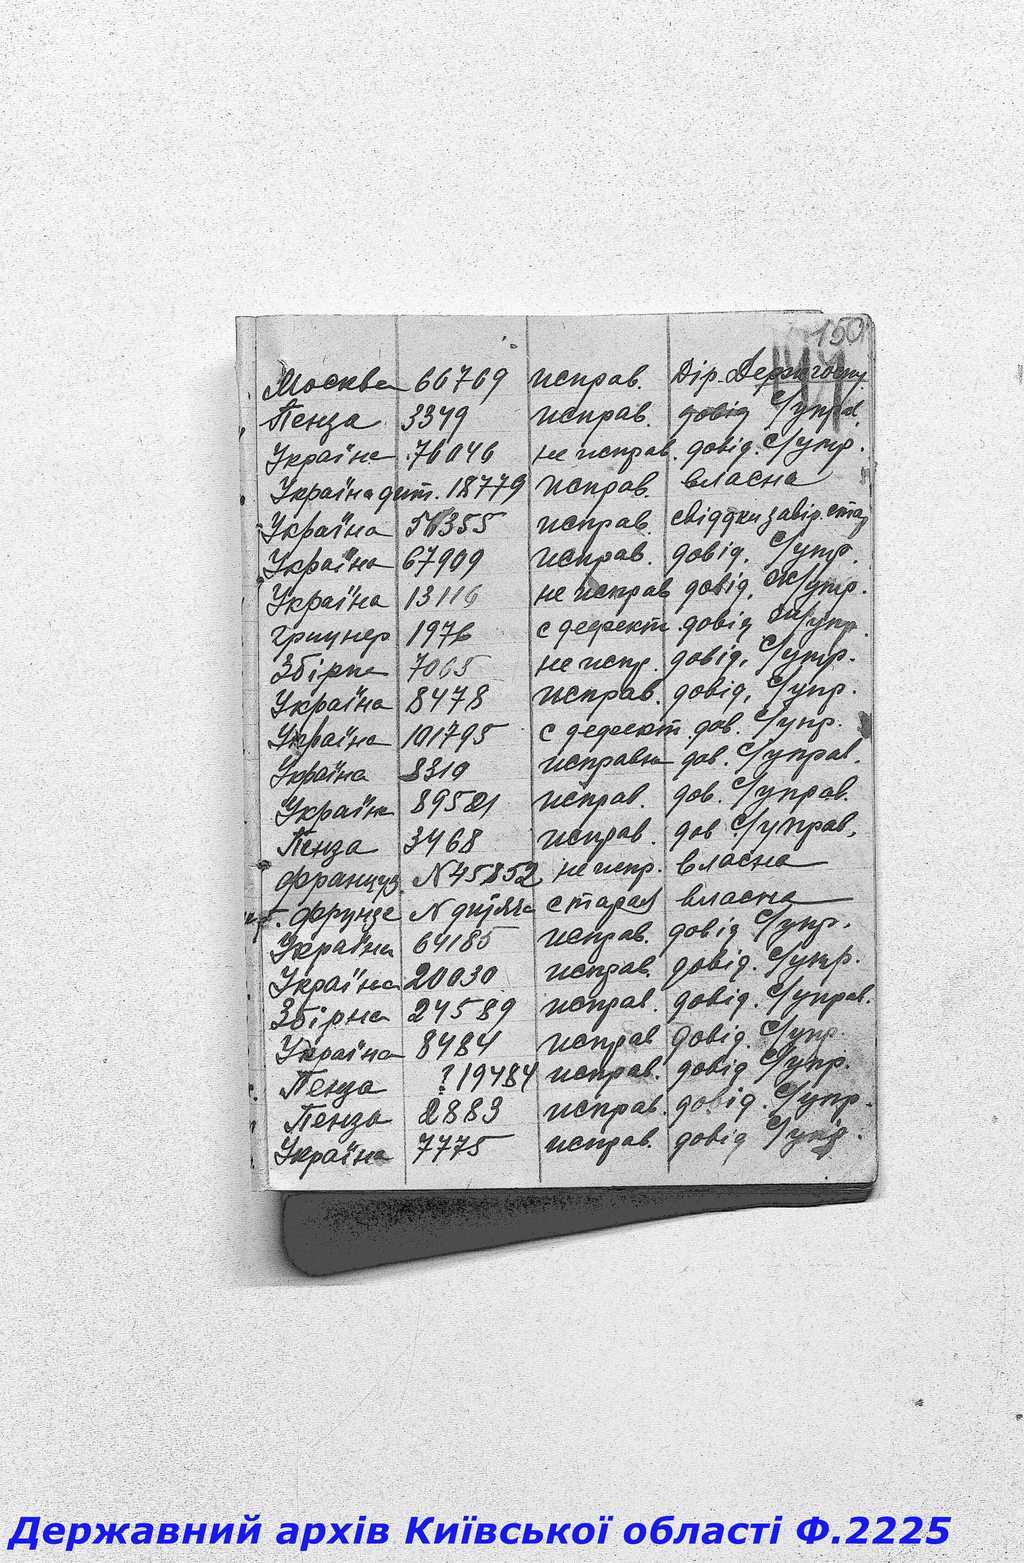 150
Москва 66769 исправ. Дір. Держгоспу
Пенза 3349 исправ. довід с/управ.
Україна 76046 не исправ. довід. с/упр.
Україна дит. 18779 исправ. власна
Україна 355 исправ. свіддки завір.
Україна 67909 исправ. довід. с/упр.
Україна 13116 не исправ довід. с/упр.
грицнер 1976 с дефект. довід с/упр.
Збірна 7065 не испр. довід. с/упр.
Україна 8478 исправ. довід. с/упр.
Україна 101795 с дефект. дов. с/упр.
Україна 8310 исправна дов. с/управ.
Україна 89521 исправ. дов. с/управ.
Пенза 3468 исправ. дов с/управ.
француз. N45852 не испр. власна
фрунзе N старая власна
Україна 64185 исправ. довід с/упр.
Україна 20030 исправ. довід. с/упр.
Збірна 24589 исправ. довід. с/управ.
Україна 8484 исправ довід. с/упр.
Пенза ? 19484 исправ. довід с/упр.
Пенза 2883 исправ. довід. с/упр.
Україна 7775 исправ. довід с/упр.
Державний архів Київської області Ф.2225